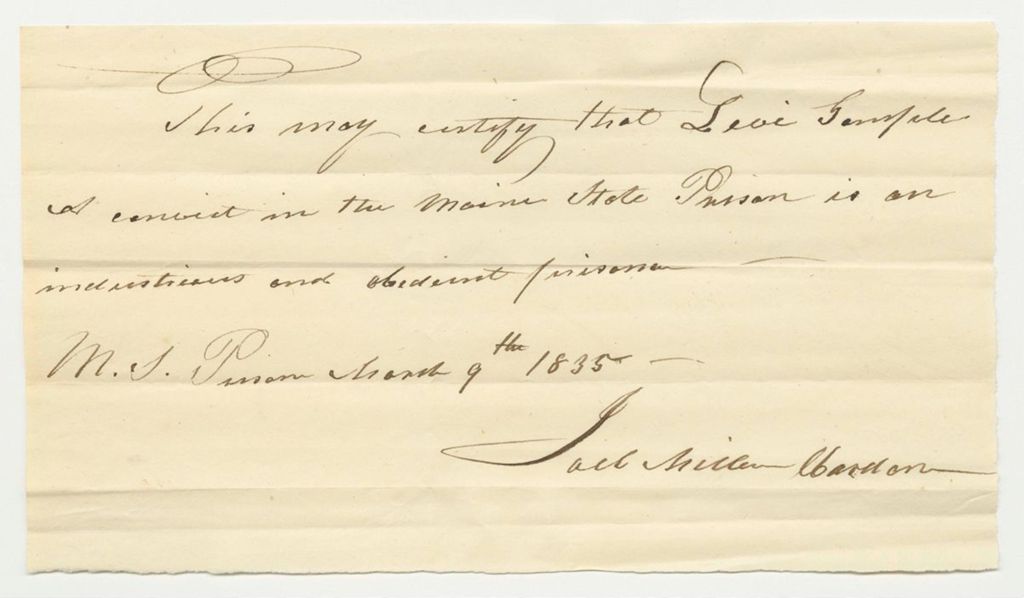 This may certify that Levi Sample
A convict in the Maine State Prison is an
industrious and obedient prisoner
M. S. Prison March 9th 1835
Joel Miller Warden